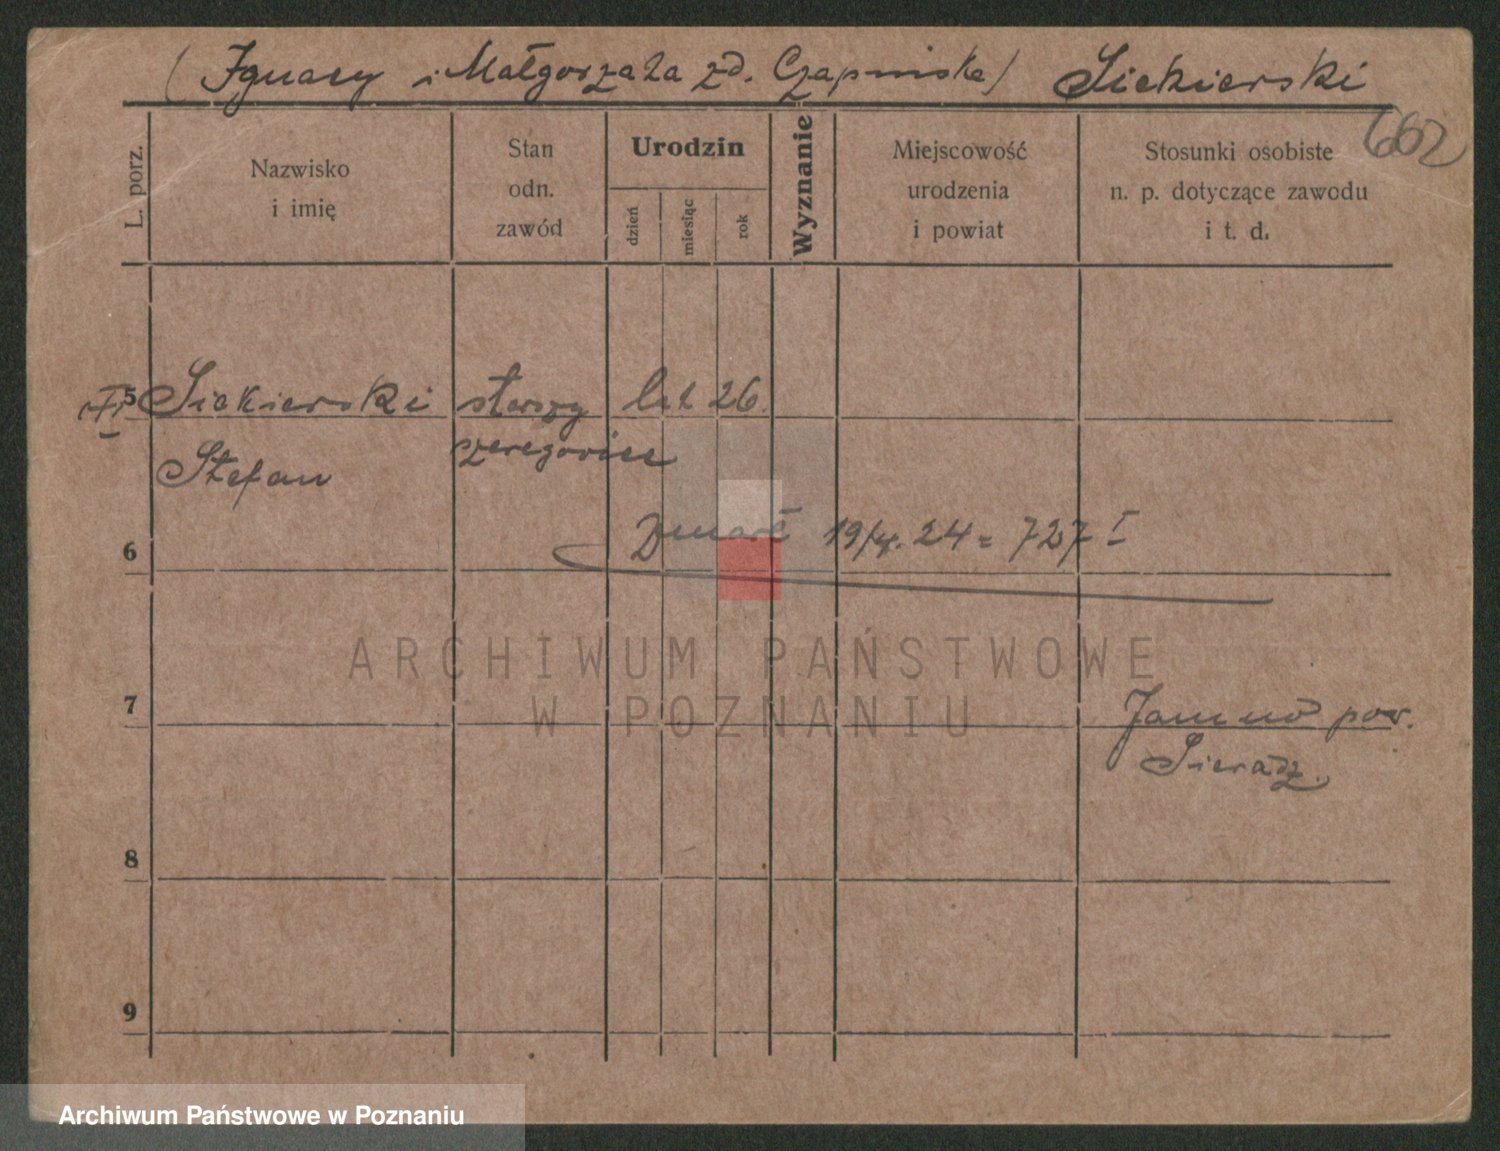 ( Ignacy i Małgorzata zd. Czapińska ) Siekierski
662
L. porz.
Nazwisko
i imię
Stan
odn.
zawód
Urodzin
dzień
miesiąc
rok
Wyznanie
Miejscowość
urodzenia
i powiat
Stosunki osobiste
n. p. dotyczące zawodu
i t. d.
5 Siekierski starszy lat 26
Stefan szeregowiec
Zmarł 19/ 24 = 727 I
6
ARCHIWUM PAŃSTWOWE
W POZNANIU
7
pow.
Sieradz.
8
9
Archiwum Państwowe w Poznaniu